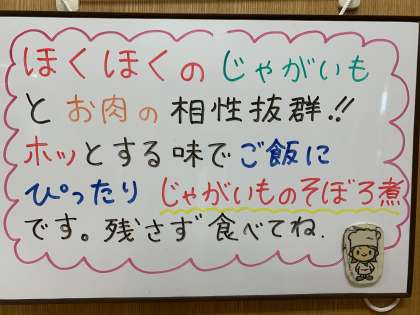 ほくほくのじゃがいも
とお肉の相性抜群!!
ホッとする味でご飯に
ぴったり じゃがいものそぼろ煮
です。残さず食べてね.